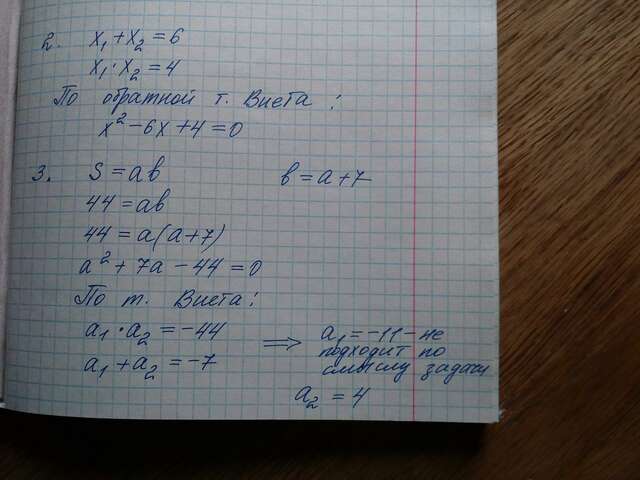 2. x₁+x₂=6
x₁·x₂=4
По обратной т. Виета:
x²-6x+4=0
3. S=ab b=a+7
44=ab
44=a(a+7)
a²+7a-44=0
По т. Виета:
a₁·a₂=-44
a₁+a₂=-7
⟹ a₁=-11-не
подходит по
смыслу задачи
a₂=4